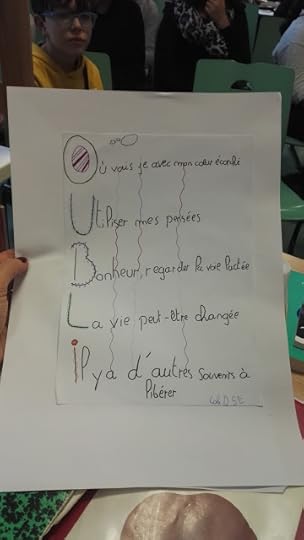 Où vais je avec mon cœur écorché
Utiliser mes pensées
Bonheur, regarder la voie lactée
La vie peut-être changée
il y a d'autres souvenirs à
libérer